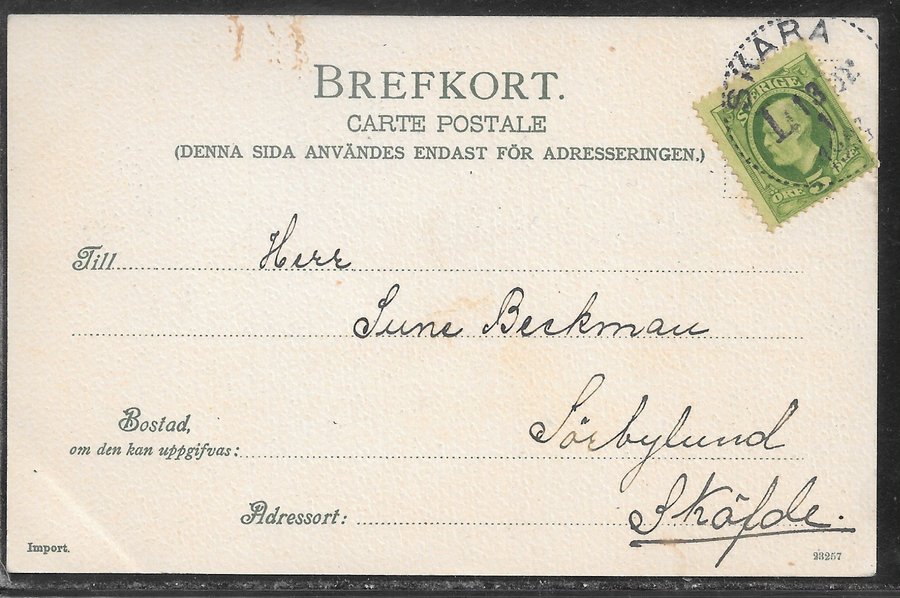 BREFKORT.
CARTE POSTALE
(DENNA SIDA ANVÄNDES ENDAST FÖR ADRESSERINGEN.)
SKARA
SVERIGE
5
ÖRE ÖRE
Till Herr
Sune Beckman
Bostad,
om den kan uppgifvas: Sörbylund
Adressort: Sköfde.
Import.
23257